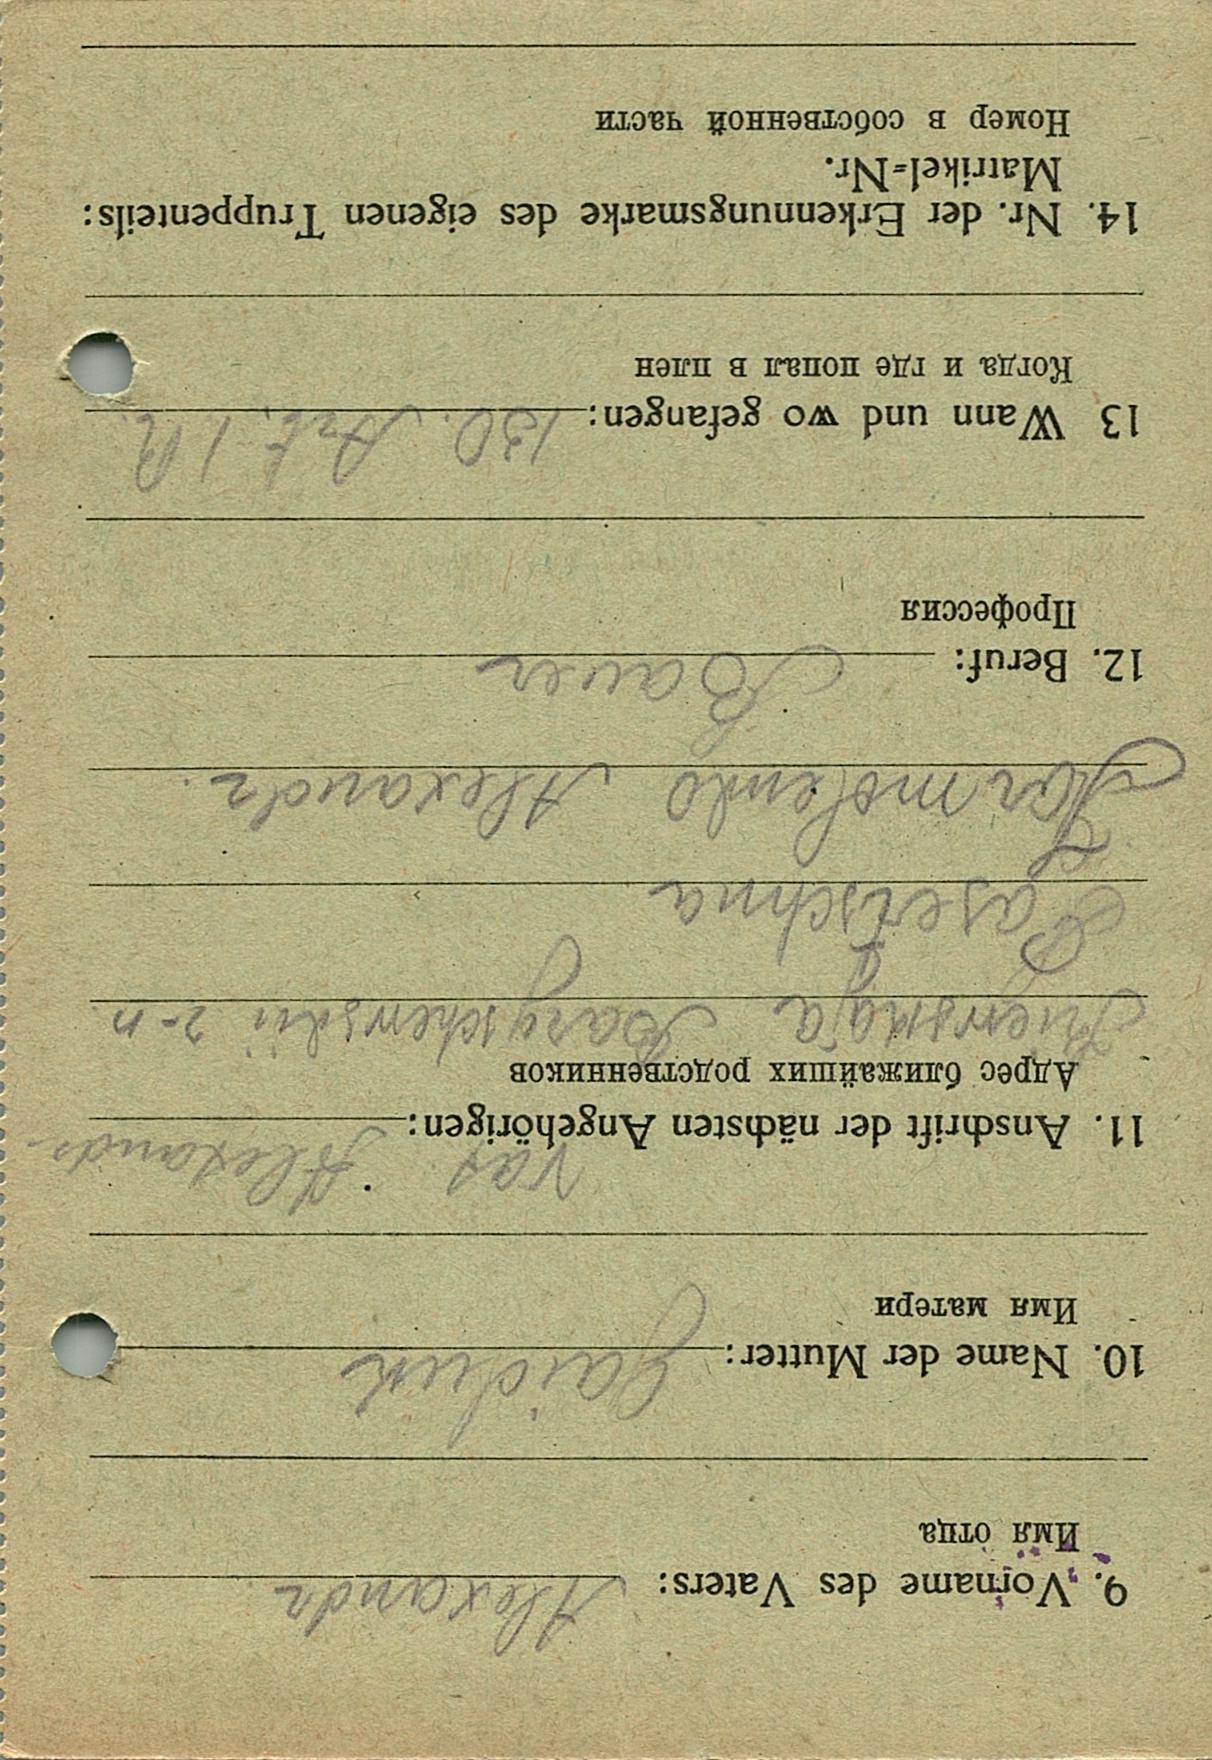 9. Vorname des Vaters: Alexandr
Имя отца
10. Name der Mutter: Gaiduk
Имя матери
Vat. Alexandr
11. Anschrift der nächsten Angehörigen:
Адрес ближайших родственников
Kiewskaja r-n
Alexandr.
12. Beruf: Bauer
Профессия
13 Wann und wo gefangen: 130. Art. 1 R.
Когда и где попал в плен
14. Nr. der Erkennungsmarke des eigenen Truppenteils:
Matrikel-Nr.
Номер в собственной части